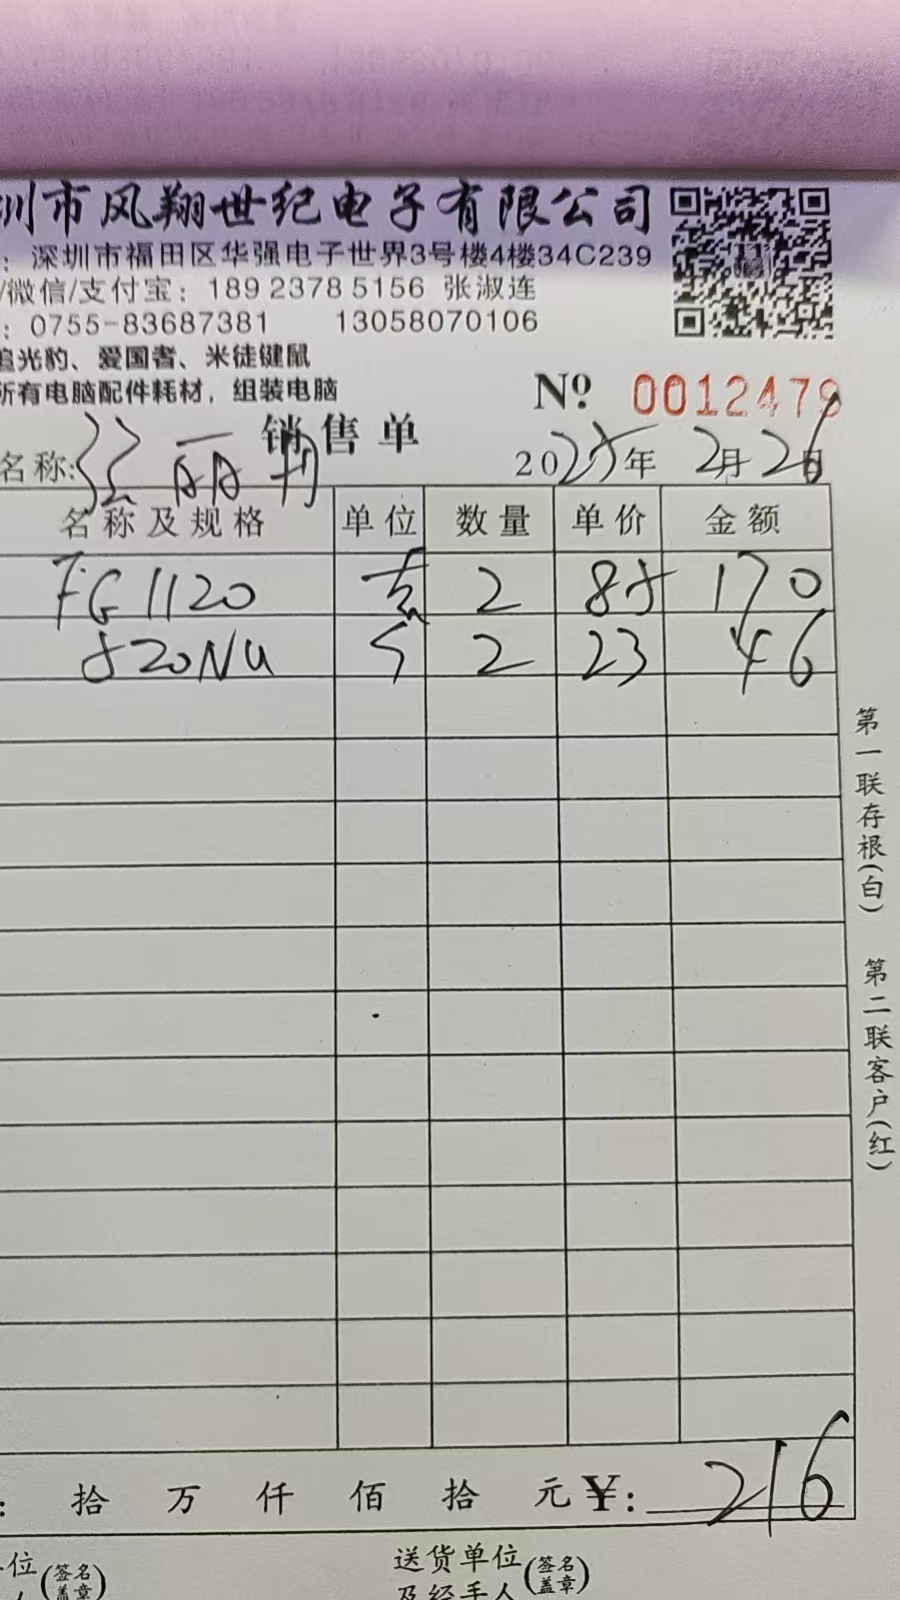 圳市风翔世纪电子有限公司
：深圳市福田区华强电子世界3号楼4楼34C239
/微信/支付宝：189 2378 5156 张淑连
：0755-83687381 13058070106
追光豹、爱国者、米徒键鼠
所有电脑配件耗材，组装电脑
Nº 0012479
销售单
名称: 2025年 2月26日
名称及规格 单位 数量 单价 金额
FG1120 2 85 170
520NU 个 2 23 46
第一联存根(白) 第二联客户(红)
：拾 万 仟 佰 拾 元¥：216
单位(签名盖章) 送货单位及经手人(签名盖章)